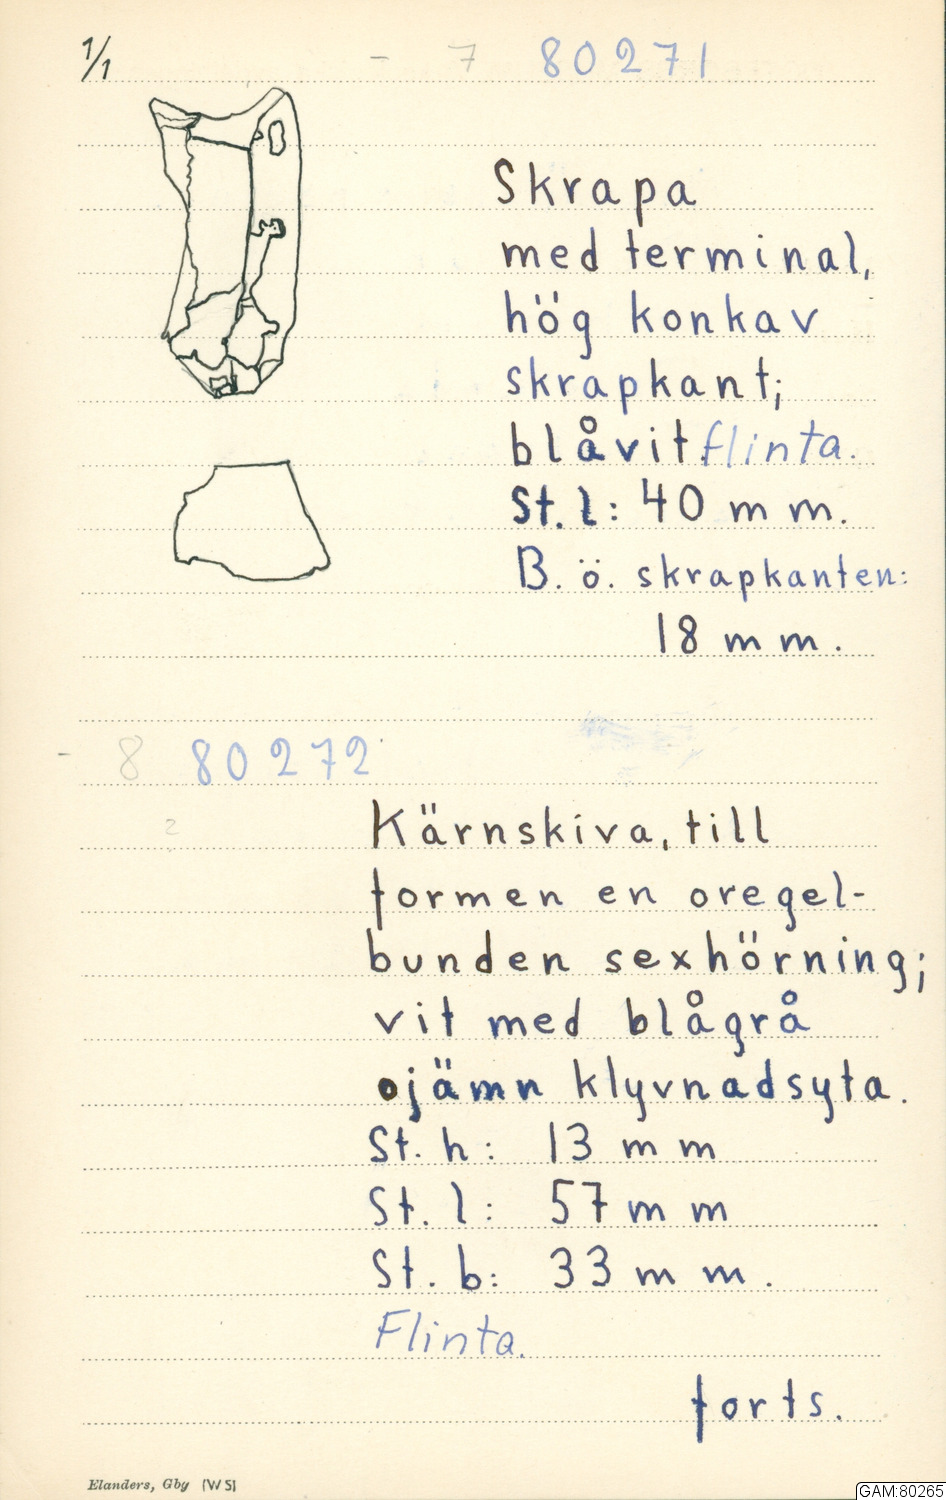 1/1
- 7 80271
Skrapa
med terminal,
hög konkav
skrapkant;
blåvit flinta.
St. l: 40 mm.
B. ö. skrapkanten:
18 mm.
- 8 80272
2
Kärnskiva, till
formen en oregel-
bunden sexhörning;
vit med blågrå
ojämn klyvnadsyta.
St. h: 13 mm
St. l: 57 mm
St. b: 33 mm.
Flinta.
forts.
Elanders, Gby (W5)
GAM:80265